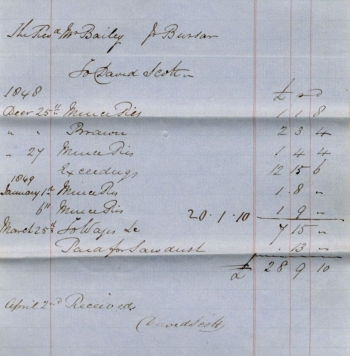 The Revd Mr Bailey Jr Bursar
To David Scott
1848 £ s d
Decr 25th Mince Pies 1 1 8
" " Brawn 2 3 4
" 27 Mince Pies 1 4 4
Exceedings 12 15 6
1849
January 1st Mince Pies 1 . 8 . "
6th Mince Pies 20 . 1 . 10 1 . 9 . "
March 25th To Wages &c 7 15 "
Paid for Sawdust . 13 . "
£ 28 9 10
April 2nd Received
David Scott